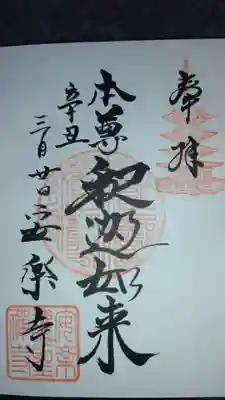 奉拝
本尊 釈迦如来
辛丑
三月廿日 安楽寺